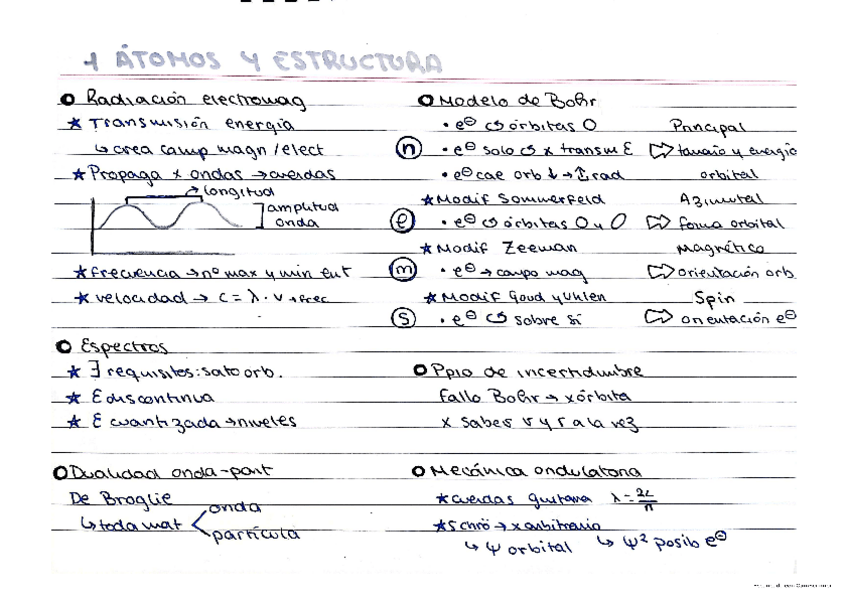 1 ÁTOMOS Y ESTRUCTURA
O Radiación electromag
★ Transmisión energía
↳ crea camp magn/elect
★ Propaga x ondas → cuerdas
longitud
amplitud
onda
★ frecuencia → nº max y min ent
★ velocidad → c = λ · ν → frec
O Espectros
★ ∃ requisitos: salto orb.
★ E discontinua
★ E cuantizada → niveles
O Dualidad onda-part
De Broglie
↳ toda mat < onda
partícula
O Modelo de Bohr
• e⊖ ↺ órbitas O Principal
n • e⊖ solo ↺ x transm E ⇨ tamaño y energía
• e⊖ cae orb ↓ → ↑ rad orbital
★ Modif Sommerfeld Azimutal
l • e⊖ ↺ órbitas O y O ⇨ forma orbital
★ Modif Zeeman Magnético
m • e⊖ → campo mag ⇨ orientación orb
★ Modif Goud y Uhlen Spin
s • e⊖ ↺ sobre sí ⇨ orientación e⊖
O Ppio de incertidumbre
fallo Bohr → x órbita
x sabes v y r a la vez
O Mecánica ondulatoria
★ cuerdas guitarra λ = 2L/n
★ Schrö → x arbitrario
↳ ψ orbital ↳ ψ² posib e⊖